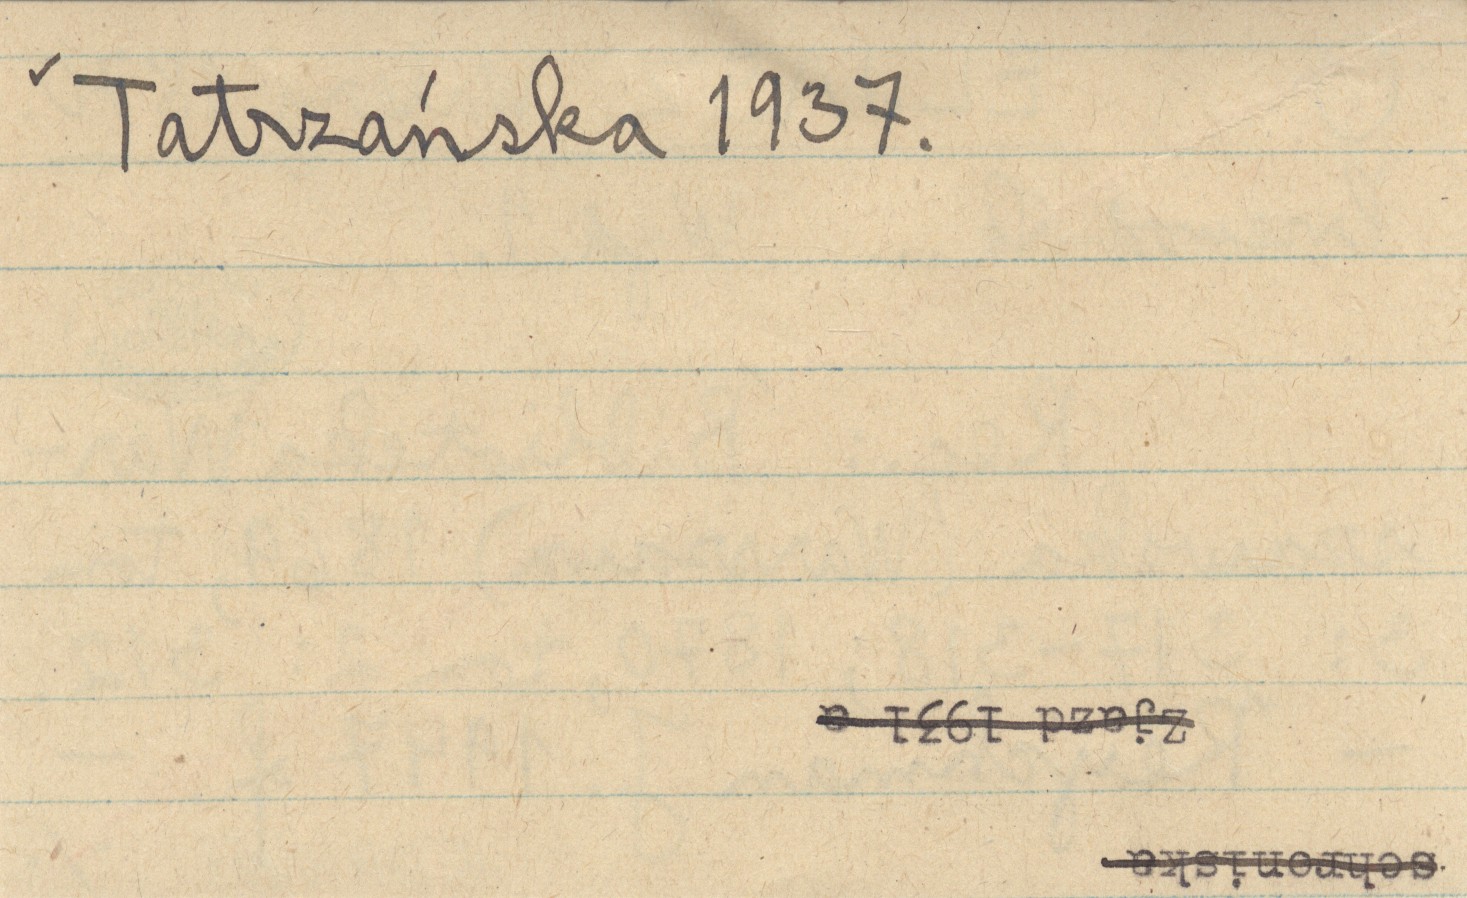 ✓ Tatrzańska 1937.
zjazd 1931 a
schroniska